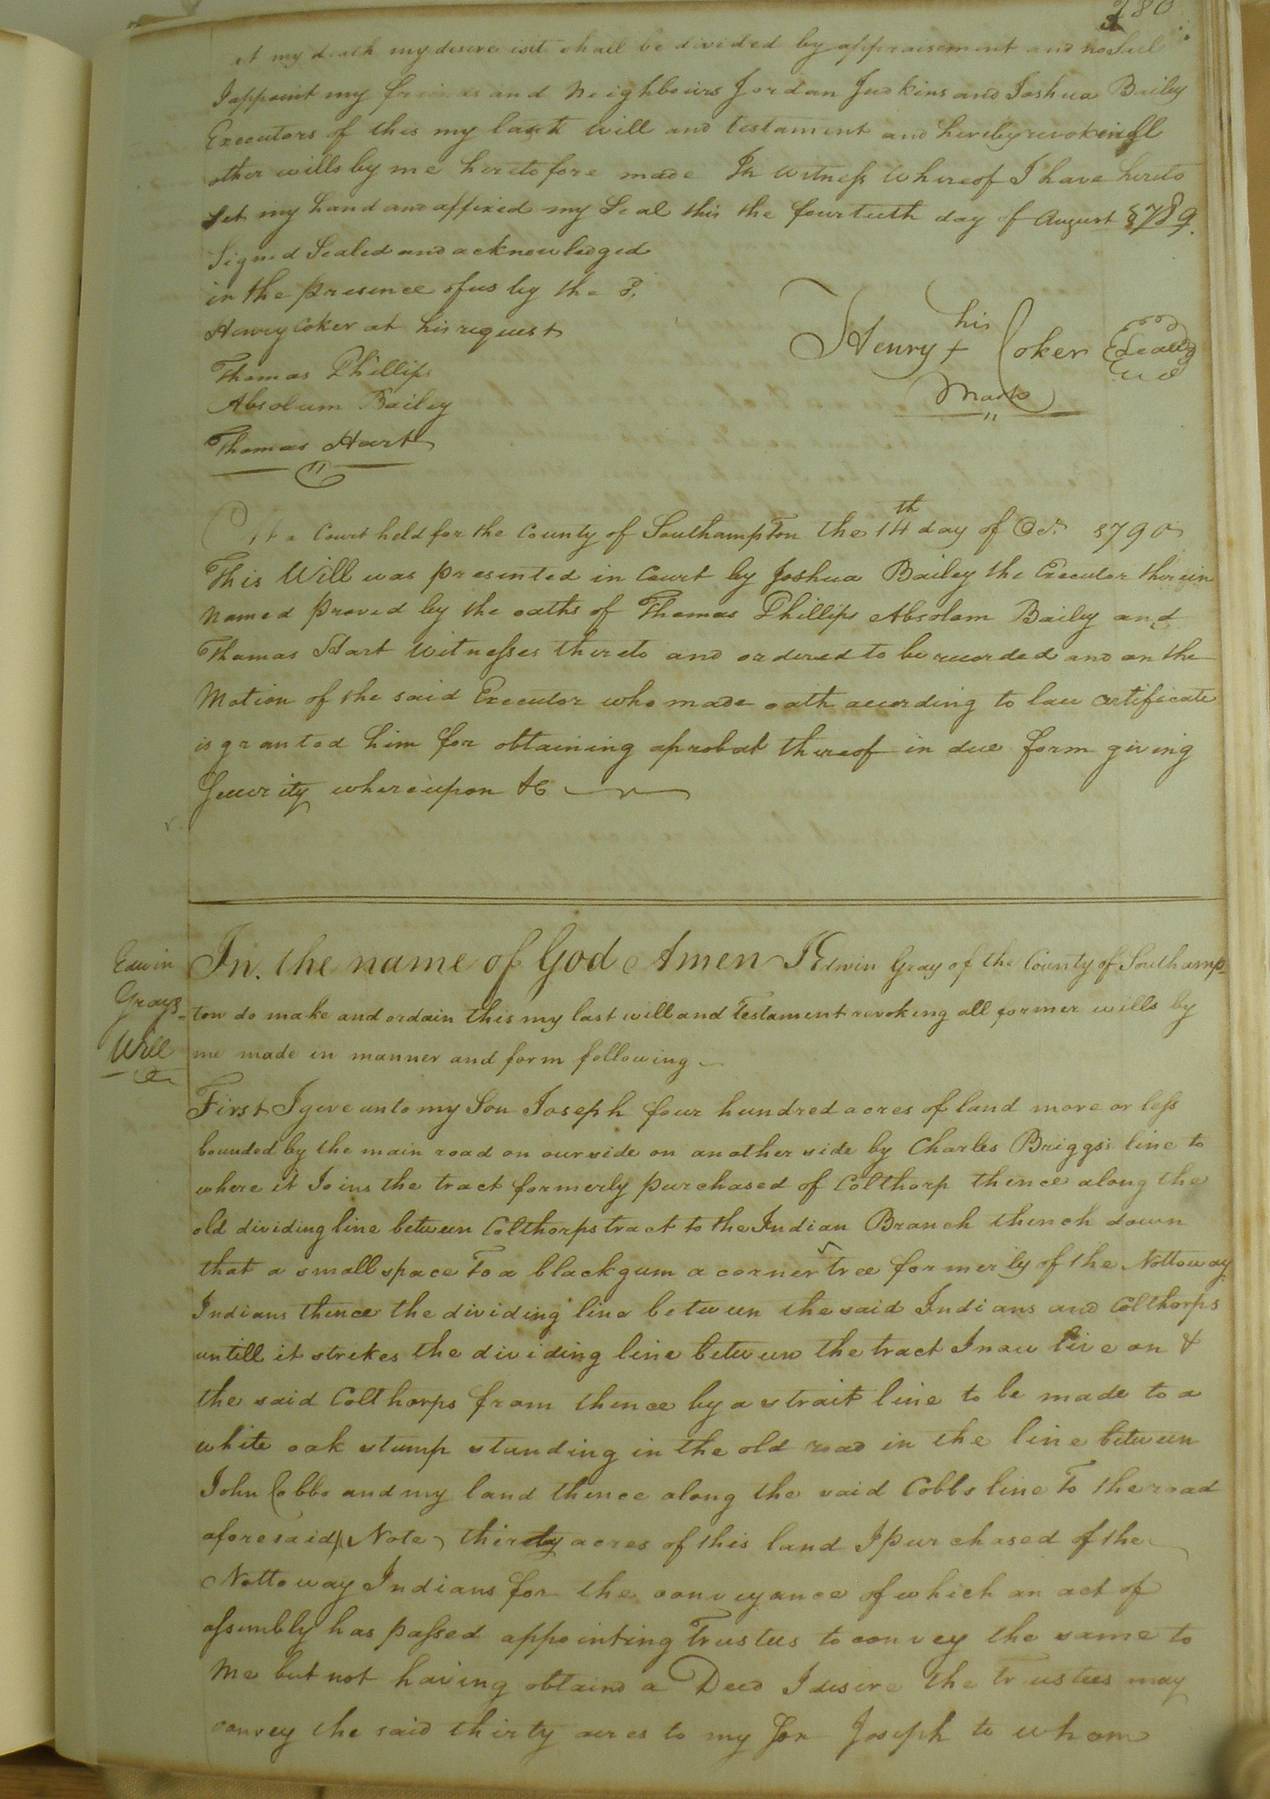 280
at my death my desire is it shall be divided by appraisement and no Sail
I appoint my friends and Neighbours Jordan Judkins and Joshua Bailey
Executors of this my last will and testament and hereby revoking all
other wills by me heretofore made In witness whereof I have hereto
set my hand and affixed my Seal this the fourteeth day of August 1789.
Signed Sealed and acknowledged
in the presence of us by the S.
Henry Coker at his request
his
Henry + Coker Seal
Mark
Thomas Phillips
Absolum Bailey
Thomas Hart
At a Court held for the County of Southampton the 14th day of Oct. 1790
This Will was presented in Court by Joshua Bailey the Executor therein
Named proved by the oaths of Thomas Phillips Absolom Bailey and
Thomas Hart Witnesses thereto and ordered to be recorded and on the
Motion of the said Executor who made oath according to law certificate
is granted him for obtaining a probat thereof in due form giving
Security whereupon &c
Edwin
Grays
Will
In the name of God Amen I Edwin Gray of the County of Southamp-
ton do make and ordain this my last will and Testament revoking all former wills by
me made in manner and form following
First I give unto my Son Joseph four hundred acres of land more or less
bounded by the main road on our side on another side by Charles Briggs's line to
where it Joins the tract formerly purchased of Colthorp thence along the
old dividing line between Colthorps tract to the Indian Branch thench down
that a small space to a blackgum a corner tree formerly of the Nottoway
Indians thence the dividing line between the said Indians and Colthorps
untill it strekes the dividing line between the tract I now live on &
the said Colthorps from thence by a strait line to be made to a
white oak stump standing in the old road in the line between
John Cobbs and my land thence along the said Cobbs line to the road
aforesaid (Note) thirty acres of this land I purchased of the
Nottoway Indians for the conveyance of which an act of
assembly has passed appointing Trustees to convey the same to
Me but not having obtaind a Deed I desire the trustees may
convey the said thirty acres to my Son Joseph to whom